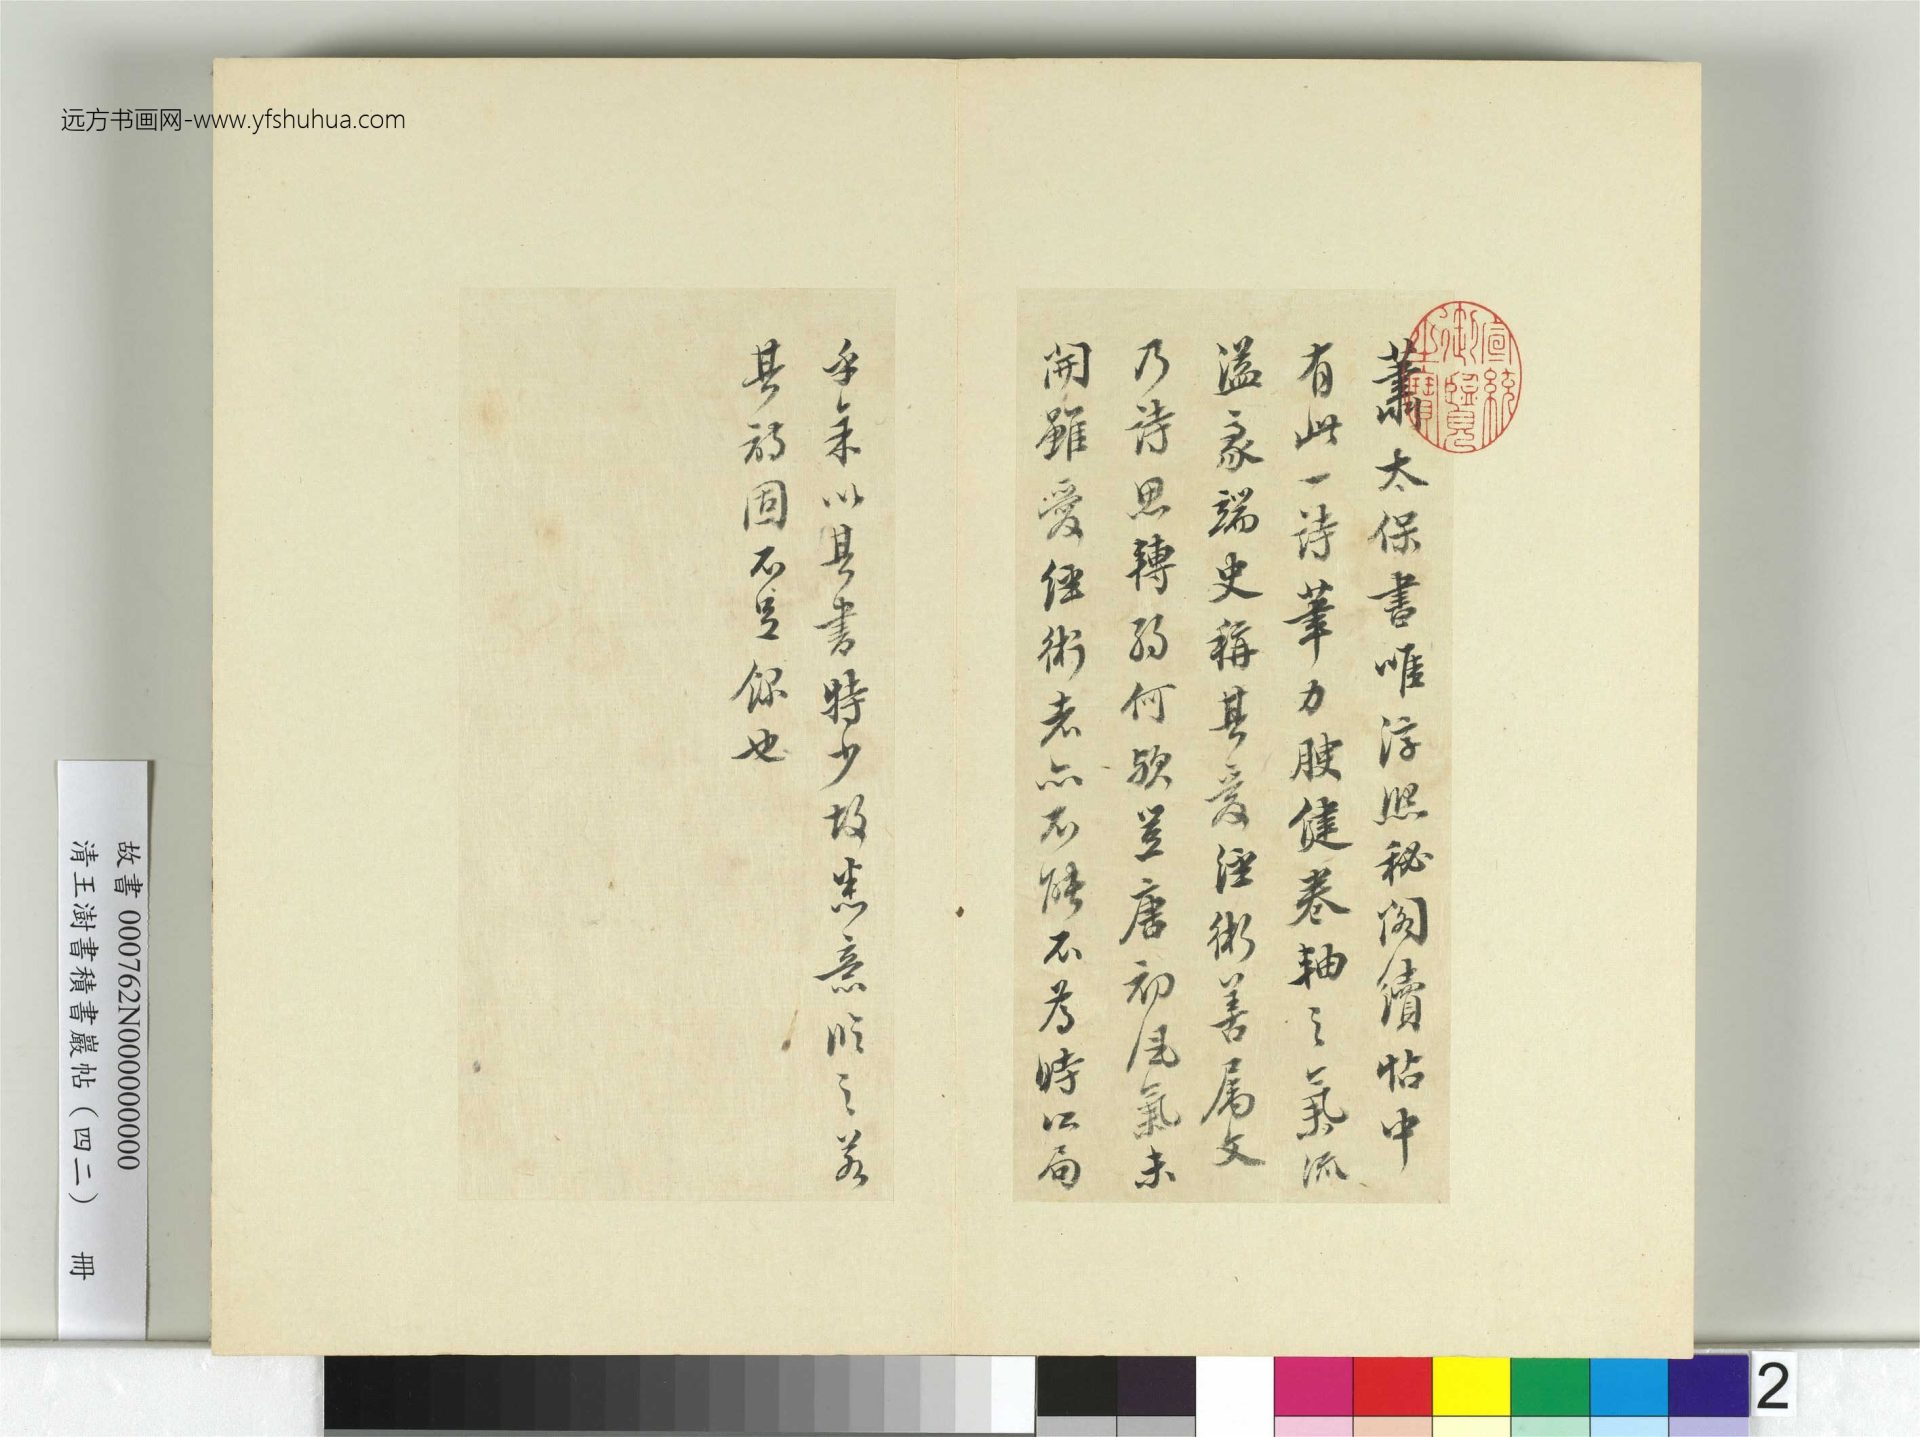 远方书画网-www.yfshuhua.com
宣統
御覽
之寶
蕭太保書唯淳熙秘閣續帖中
有此一詩筆力腴健卷軸之氣流
溢豪端史稱其愛經術善属文
乃詩思轉弱何欤豈唐初風氣未
開雖愛經術者亦不能不為時所局
乎余以其書特少故悉意臨之若
其詩固不足錄也
故書 000762N000000000
清王澍書積書巖帖（四二） 冊
2